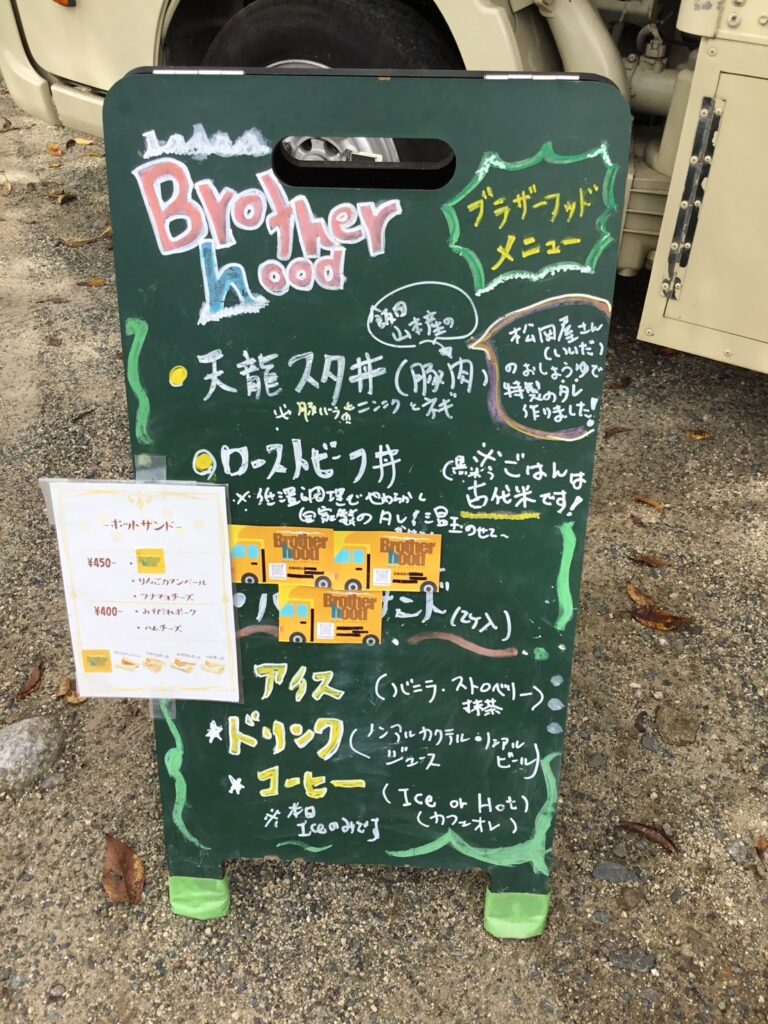 Brother
hood
ブラザーフッド
メニュー
飯田
山本産の
天龍スタ丼(豚肉)
松岡屋さん
(いいだ)
のおしょうゆで
特製のタレ
作りました!
ニンニクとネギ
ローストビーフ丼
※低温調理でやわらかく
自家製のタレ!温玉のせて〜
※ごはんは
古代米です!
-ホットサンド-
¥450-
・りんごカマンベール
・ツナマヨチーズ
¥400-
・みそだれポーク
・ハムチーズ
Brother
hood
Brother
hood
Brother
hood
サンド(2ケ入)
アイス (バニラ・ストロベリー)
抹茶
ドリンク (ノンアルカクテル・ノンアル
ジュース ビール)
コーヒー (Ice or Hot)
(カフェオレ)
※本日
Iceのみです